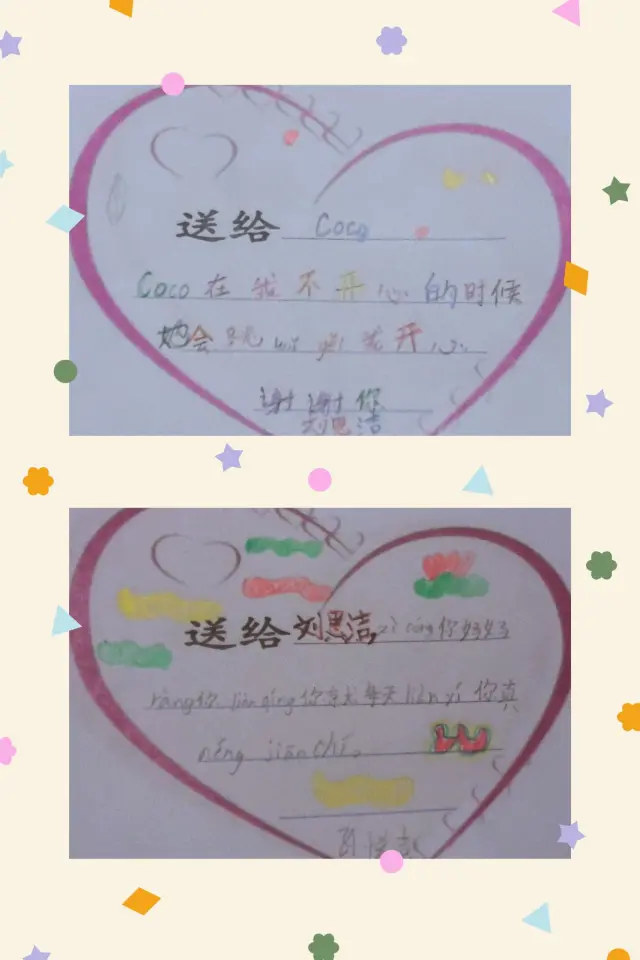 送给 Coco
Coco 在我不开心的时候
她会 我开心
谢谢你
刘思洁
送给刘思洁, zì cóng 你妈妈
ràng你 liàn qíng 你就每天 liàn xí 你真
néng jiān chí。